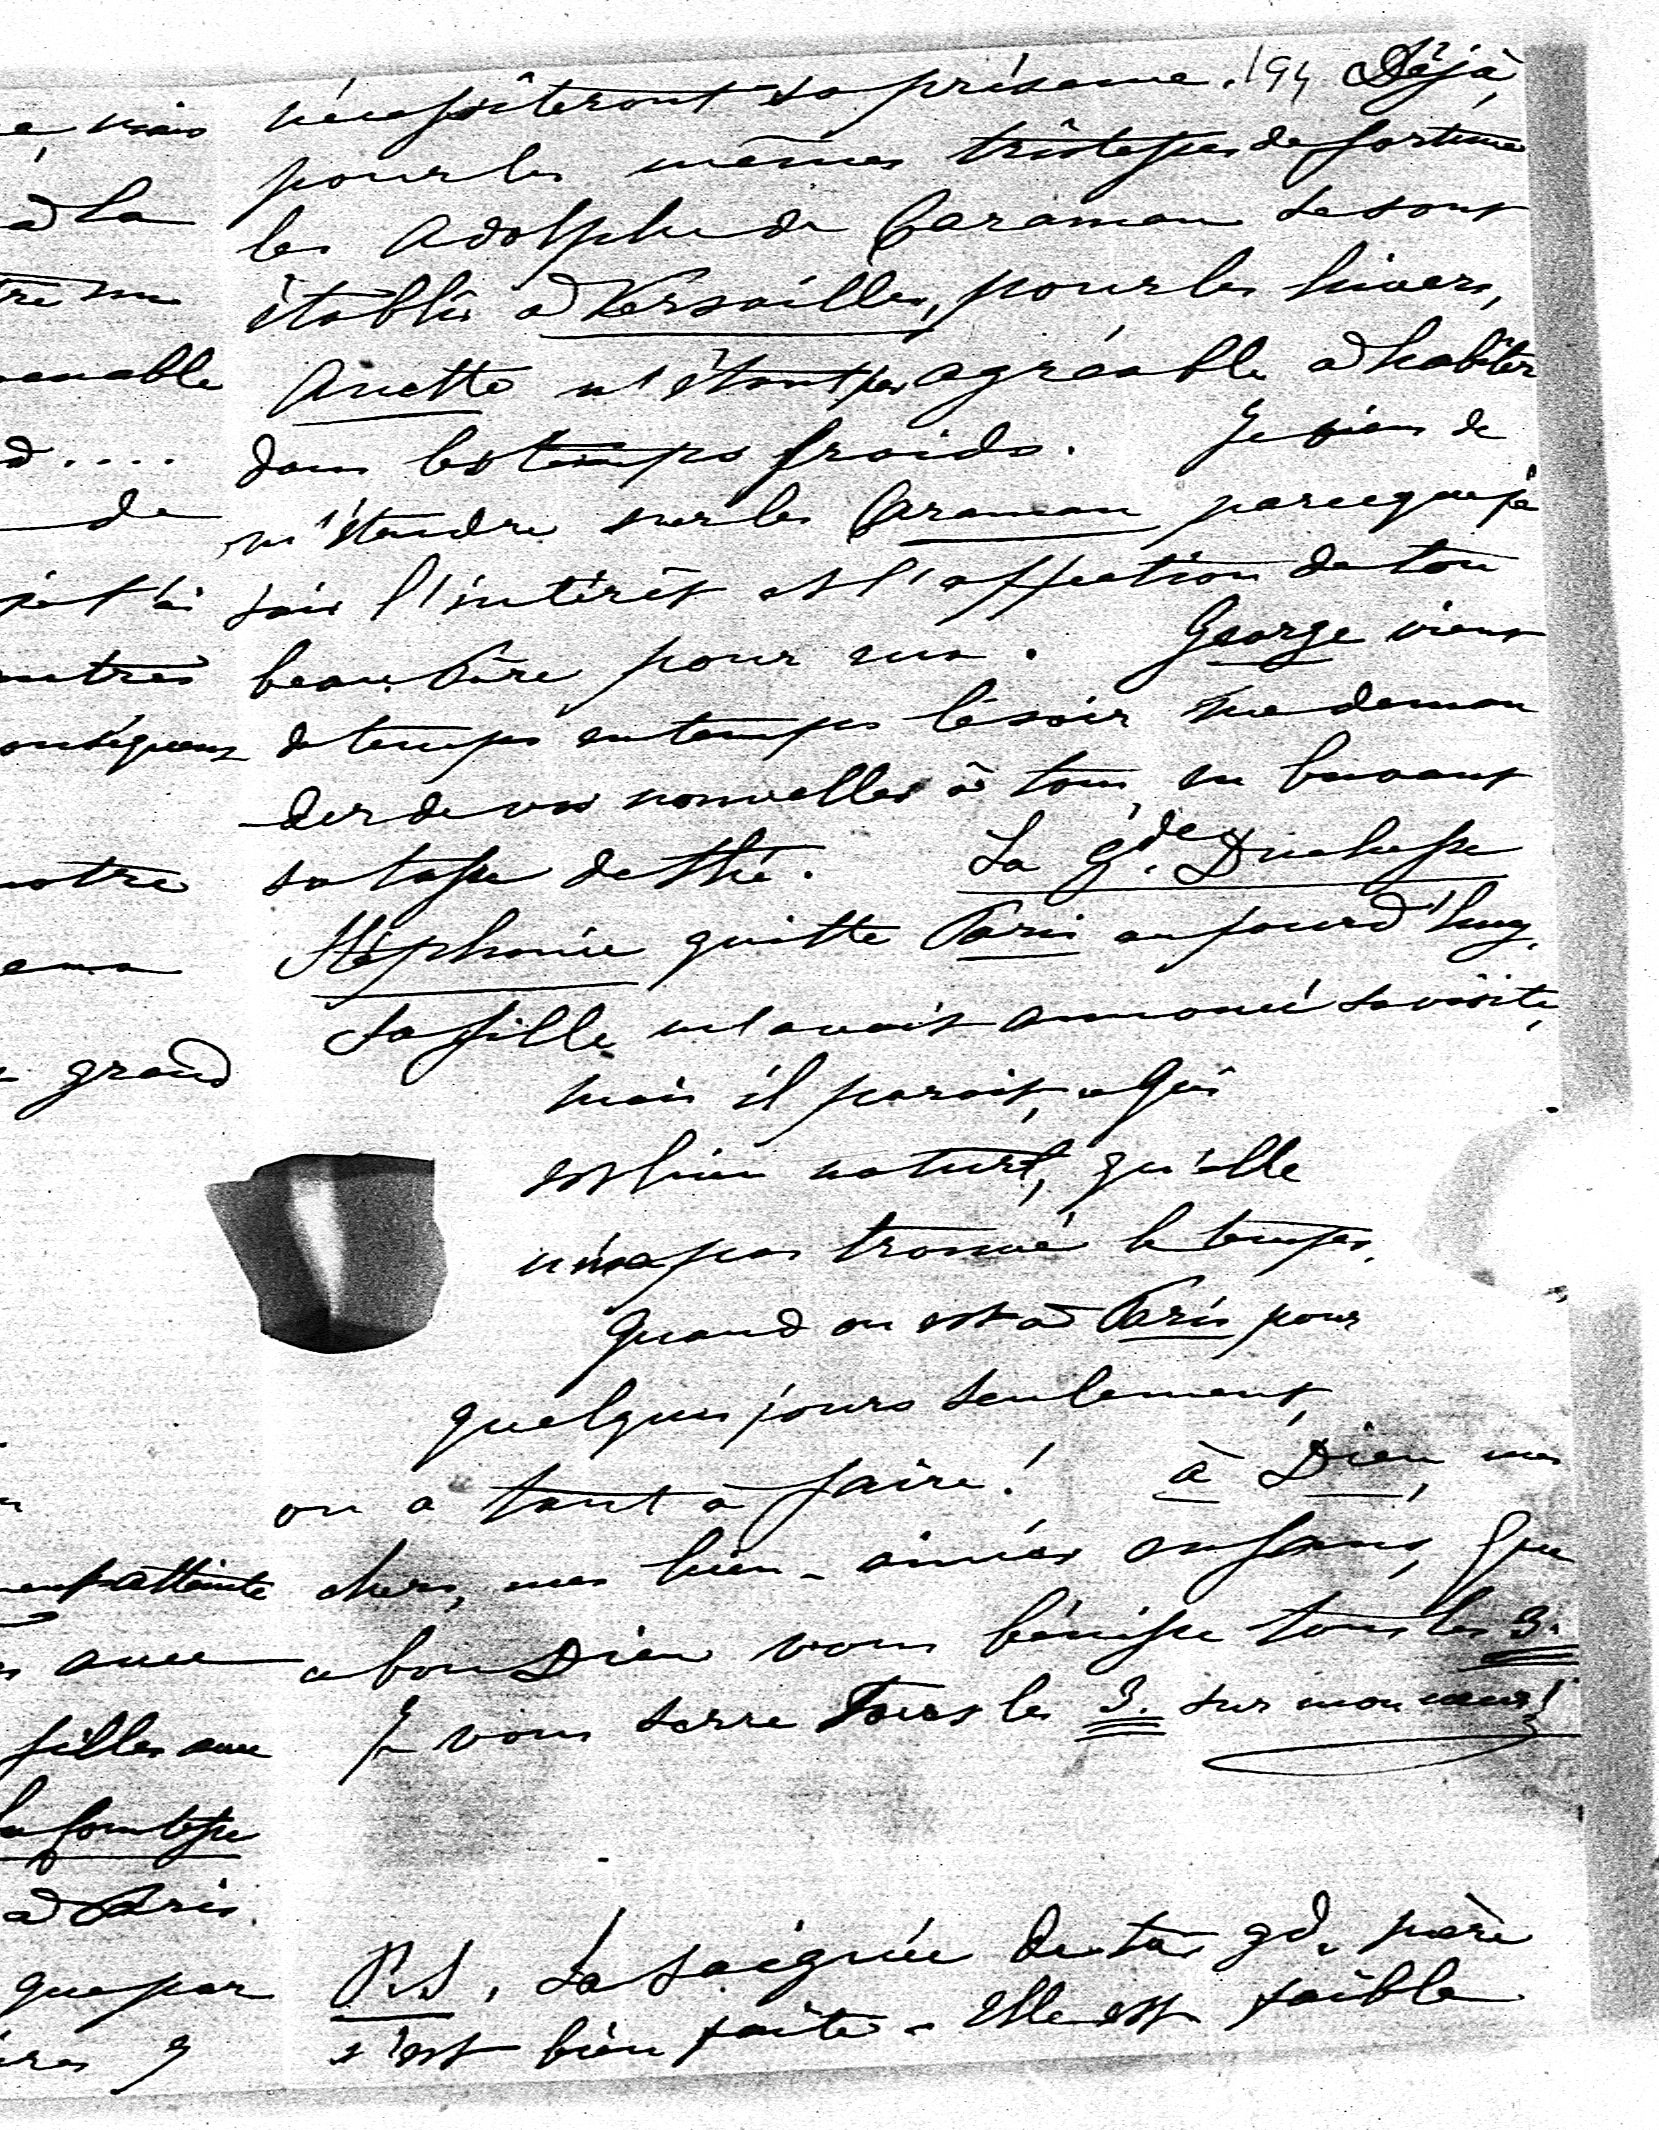 nécessiteront sa présence. 194 Déjà,
pour les mêmes tristesses de fortune
les Adolphe de Caraman se sont
établis à Versailles, pour les hivers,
Anette n'étant pas agréable à habiter
dans les temps froids. Je viens de
m'étendre sur les Caraman parceque je
sais l'intérêt et l'affection de ton
beau-Père pour eux. George vient
de temps en temps le soir me deman
-der de vos nouvelles à tous, en buvant
sa tasse de thé. La gde. Duchesse
Stéphanie quitte Paris aujourd'huy.
Sa fille m'avait annoncé sa visite,
mais il paroit, ce qui
est bien naturel, qu'elle
n'en a pas trouvé le temps.
Quand on est à Paris pour
quelques jours seulement,
on a tant à faire! à Dieu, mes
chers, mes bien-aimés enfans, que
ce bon Dieu vous bénisse tous les 3.
Je vous serre tous les 3. sur mon cœur!
P.S. La saignée de ta gd. mère
s'est bien faite. Elle est faible
e, mais
à la
tre
venable
d....
de
je t'ai
autres
conséquent
notre
grand
atteinte
avec
filles
la Comtesse
à Paris.
que par